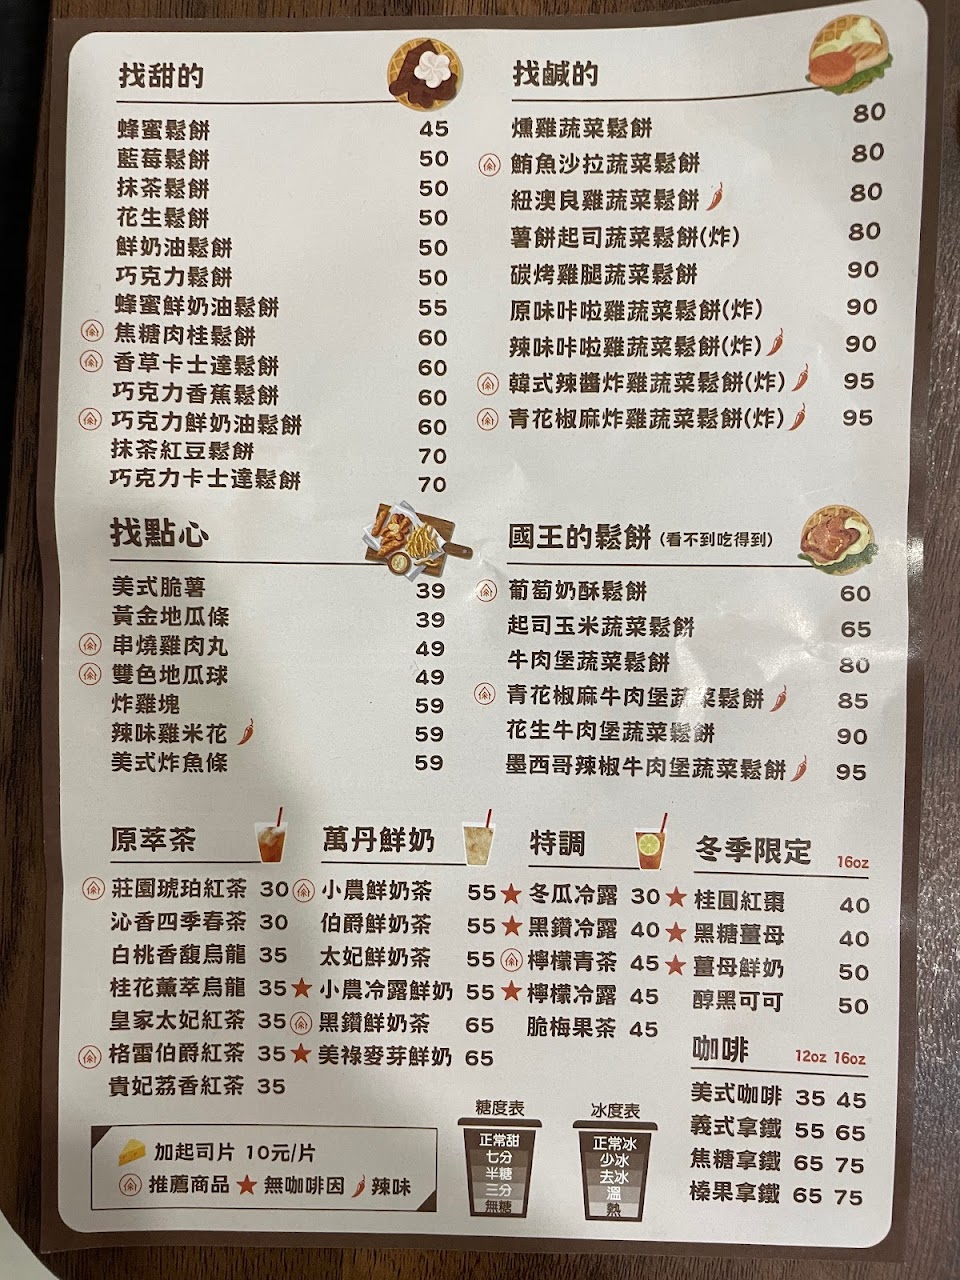 找甜的
蜂蜜鬆餅 45
藍莓鬆餅 50
抹茶鬆餅 50
花生鬆餅 50
鮮奶油鬆餅 50
巧克力鬆餅 50
蜂蜜鮮奶油鬆餅 55
焦糖肉桂鬆餅 60
香草卡士達鬆餅 60
巧克力香蕉鬆餅 60
巧克力鮮奶油鬆餅 60
抹茶紅豆鬆餅 70
巧克力卡士達鬆餅 70
找鹹的
燻雞蔬菜鬆餅 80
鮪魚沙拉蔬菜鬆餅 80
紐澳良雞蔬菜鬆餅 80
薯餅起司蔬菜鬆餅(炸) 80
碳烤雞腿蔬菜鬆餅 90
原味咔啦雞蔬菜鬆餅(炸) 90
辣味咔啦雞蔬菜鬆餅(炸) 90
韓式辣醬炸雞蔬菜鬆餅(炸) 95
青花椒麻炸雞蔬菜鬆餅(炸) 95
找點心
美式脆薯 39
黃金地瓜條 39
串燒雞肉丸 49
雙色地瓜球 49
炸雞塊 59
辣味雞米花 59
美式炸魚條 59
國王的鬆餅 (看不到吃得到)
葡萄奶酥鬆餅 60
起司玉米蔬菜鬆餅 65
牛肉堡蔬菜鬆餅 80
青花椒麻牛肉堡蔬菜鬆餅 85
花生牛肉堡蔬菜鬆餅 90
墨西哥辣椒牛肉堡蔬菜鬆餅 95
原萃茶
莊園琥珀紅茶 30
沁香四季春茶 30
白桃香馥烏龍 35
桂花薰萃烏龍 35
皇家太妃紅茶 35
格雷伯爵紅茶 35
貴妃荔香紅茶 35
萬丹鮮奶
小農鮮奶茶 55
伯爵鮮奶茶 55
太妃鮮奶茶 55
★小農冷露鮮奶 55
黑鑽鮮奶茶 65
★美祿麥芽鮮奶 65
特調
★冬瓜冷露 30
★黑鑽冷露 40
檸檬青茶 45
★檸檬冷露 45
脆梅果茶 45
冬季限定 16oz
★桂圓紅棗 40
★黑糖薑母 40
★薑母鮮奶 50
醇黑可可 50
咖啡 12oz 16oz
美式咖啡 35 45
義式拿鐵 55 65
焦糖拿鐵 65 75
榛果拿鐵 65 75
加起司片 10元/片
推薦商品 ★無咖啡因 辣味
糖度表
正常甜
七分
半糖
三分
無糖
冰度表
正常冰
少冰
去冰
溫
熱